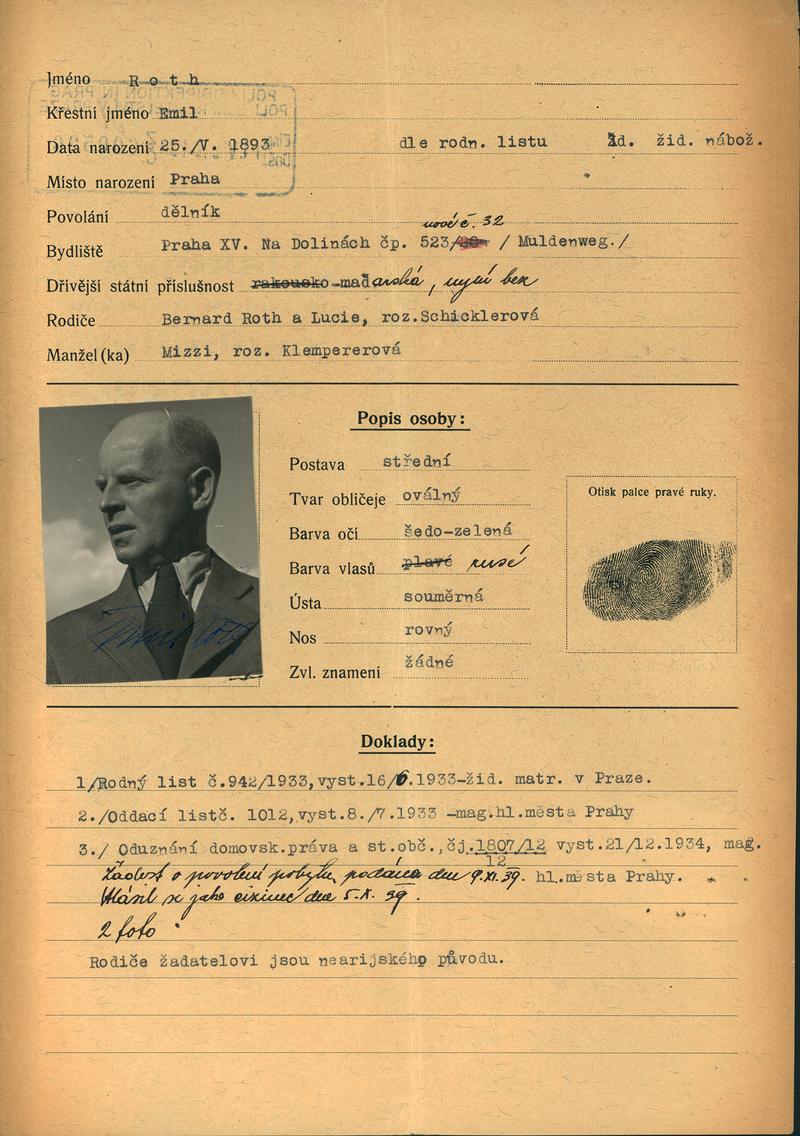 Jméno Roth
Křestní jméno Emil
Data narození 25./V. 1893 dle rodn. listu žd. žid. nábož.
Místo narození Praha
Povolání dělník
nové č. 32
Bydliště Praha XV. Na Dolinách čp. 523/ / Muldenweg./
Dřívější státní příslušnost rakousko-maďarská, nyní bez
Rodiče Bernard Roth a Lucie, roz.Schicklerová
Manžel(ka) Mizzi, roz. Klempererová
Popis osoby:
Postava střední
Tvar obličeje oválný
Barva očí šedo-zelená
Barva vlasů plavé rusé
Ústa souměrná
Nos rovný
Zvl. znamení žádné
Otisk palce pravé ruky.
Emil Roth
Doklady:
1/Rodný list č.942/1933,vyst.16/6.1933-žid. matr. v Praze.
2./Oddací listč. 1012,vyst.8./7.1933 -mag.hl.města Prahy
3./ Oduznání domovsk.práva a st.obč.,čj.1807/12 vyst.21/12.1934, mag.
12
Žádost o povolení pobytu, podána dne 9.XI.39. hl.města Prahy.
Hlásil se jako cizinec dne 5.X. 39.
2 foto
Rodiče žadatelovi jsou nearijského původu.